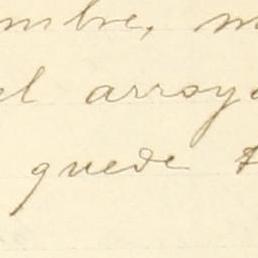 mbre, m
el arroyo
quede t